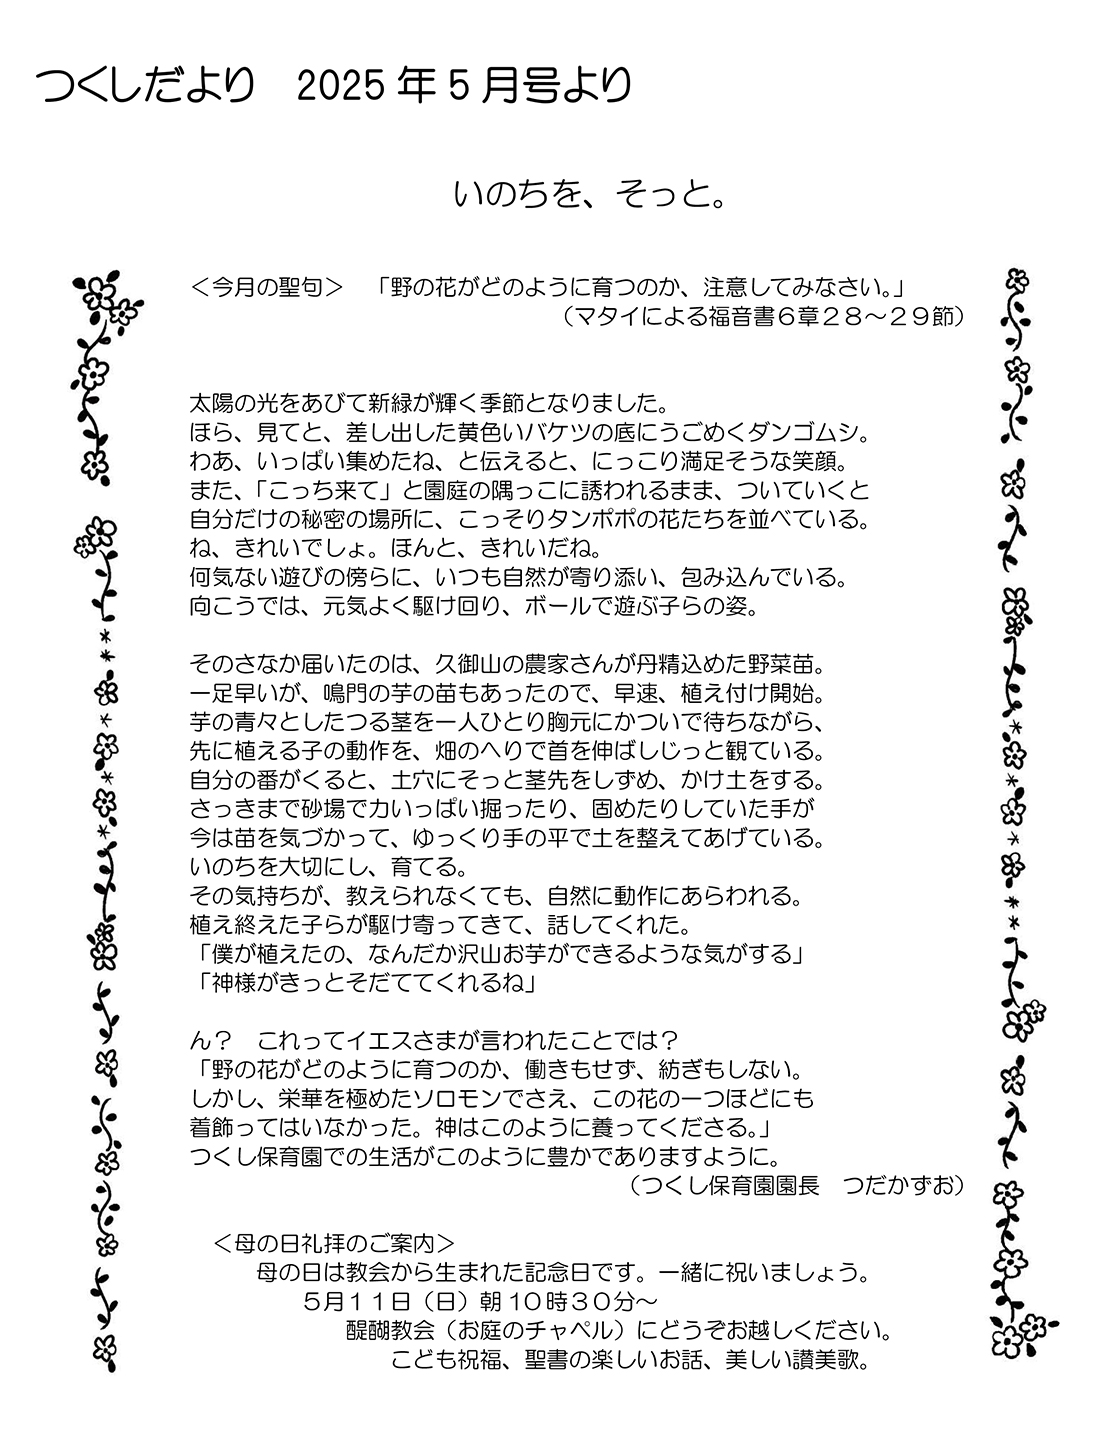 つくしだより　2025年5月号より
いのちを、そっと。
＜今月の聖句＞　「野の花がどのように育つのか、注意してみなさい。」
（マタイによる福音書６章２８～２９節）
太陽の光をあびて新緑が輝く季節となりました。
ほら、見てと、差し出した黄色いバケツの底にうごめくダンゴムシ。
わあ、いっぱい集めたね、と伝えると、にっこり満足そうな笑顔。
また、「こっち来て」と園庭の隅っこに誘われるまま、ついていくと
自分だけの秘密の場所に、こっそりタンポポの花たちを並べている。
ね、きれいでしょ。ほんと、きれいだね。
何気ない遊びの傍らに、いつも自然が寄り添い、包み込んでいる。
向こうでは、元気よく駆け回り、ボールで遊ぶ子らの姿。
そのさなか届いたのは、久御山の農家さんが丹精込めた野菜苗。
一足早いが、鳴門の芋の苗もあったので、早速、植え付け開始。
芋の青々としたつる茎を一人ひとり胸元にかついで待ちながら、
先に植える子の動作を、畑のへりで首を伸ばしじっと観ている。
自分の番がくると、土穴にそっと茎先をしずめ、かけ土をする。
さっきまで砂場で力いっぱい掘ったり、固めたりしていた手が
今は苗を気づかって、ゆっくり手の平で土を整えてあげている。
いのちを大切にし、育てる。
その気持ちが、教えられなくても、自然に動作にあらわれる。
植え終えた子らが駆け寄ってきて、話してくれた。
「僕が植えたの、なんだか沢山お芋ができるような気がする」
「神様がきっとそだててくれるね」
ん？　これってイエスさまが言われたことでは？
「野の花がどのように育つのか、働きもせず、紡ぎもしない。
しかし、栄華を極めたソロモンでさえ、この花の一つほどにも
着飾ってはいなかった。神はこのように養ってくださる。」
つくし保育園での生活がこのように豊かでありますように。
（つくし保育園園長　つだかずお）
＜母の日礼拝のご案内＞
母の日は教会から生まれた記念日です。一緒に祝いましょう。
５月１１日（日）朝10時３０分～
醍醐教会（お庭のチャペル）にどうぞお越しください。
こども祝福、聖書の楽しいお話、美しい讃美歌。